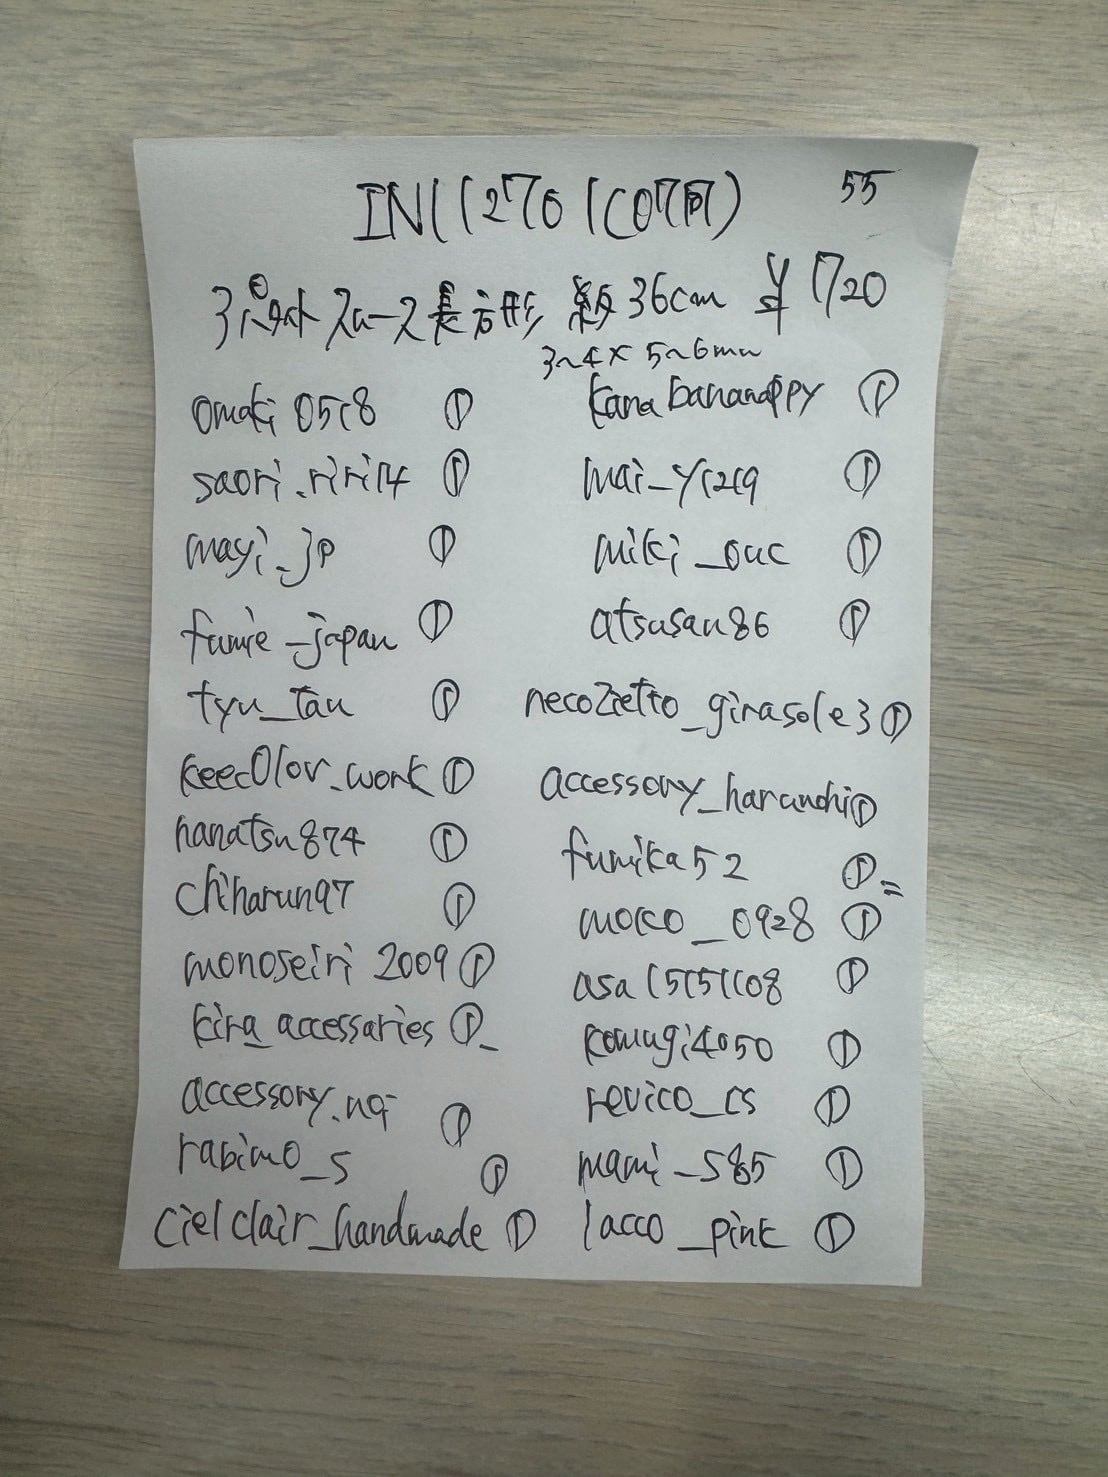 INC12701(07月) 55
スムース長方形 約36cm ¥1720
3~4×5~6mm
omaki0518 ①
saori.riri14 ①
mayi_jp ①
fumie_japan ①
tyu_tau ①
keecolor_work ①
hanatsu874 ①
chiharun97 ①
monoseiri2009 ①
kira_accessaries ①
accessory.nqi ①
rabimo_s ①
cielclair_handmade ①
kanabananappy ①
mai_y1219 ①
miki_ouc ①
atsusan86 ①
necozietto_girasole3 ①
accessory_harunchi ①
fumika52 ①
mocco_0928 ①
asa15151108 ①
komugi4050 ①
revico_cs ①
mami_s85 ①
lacco_pink ①